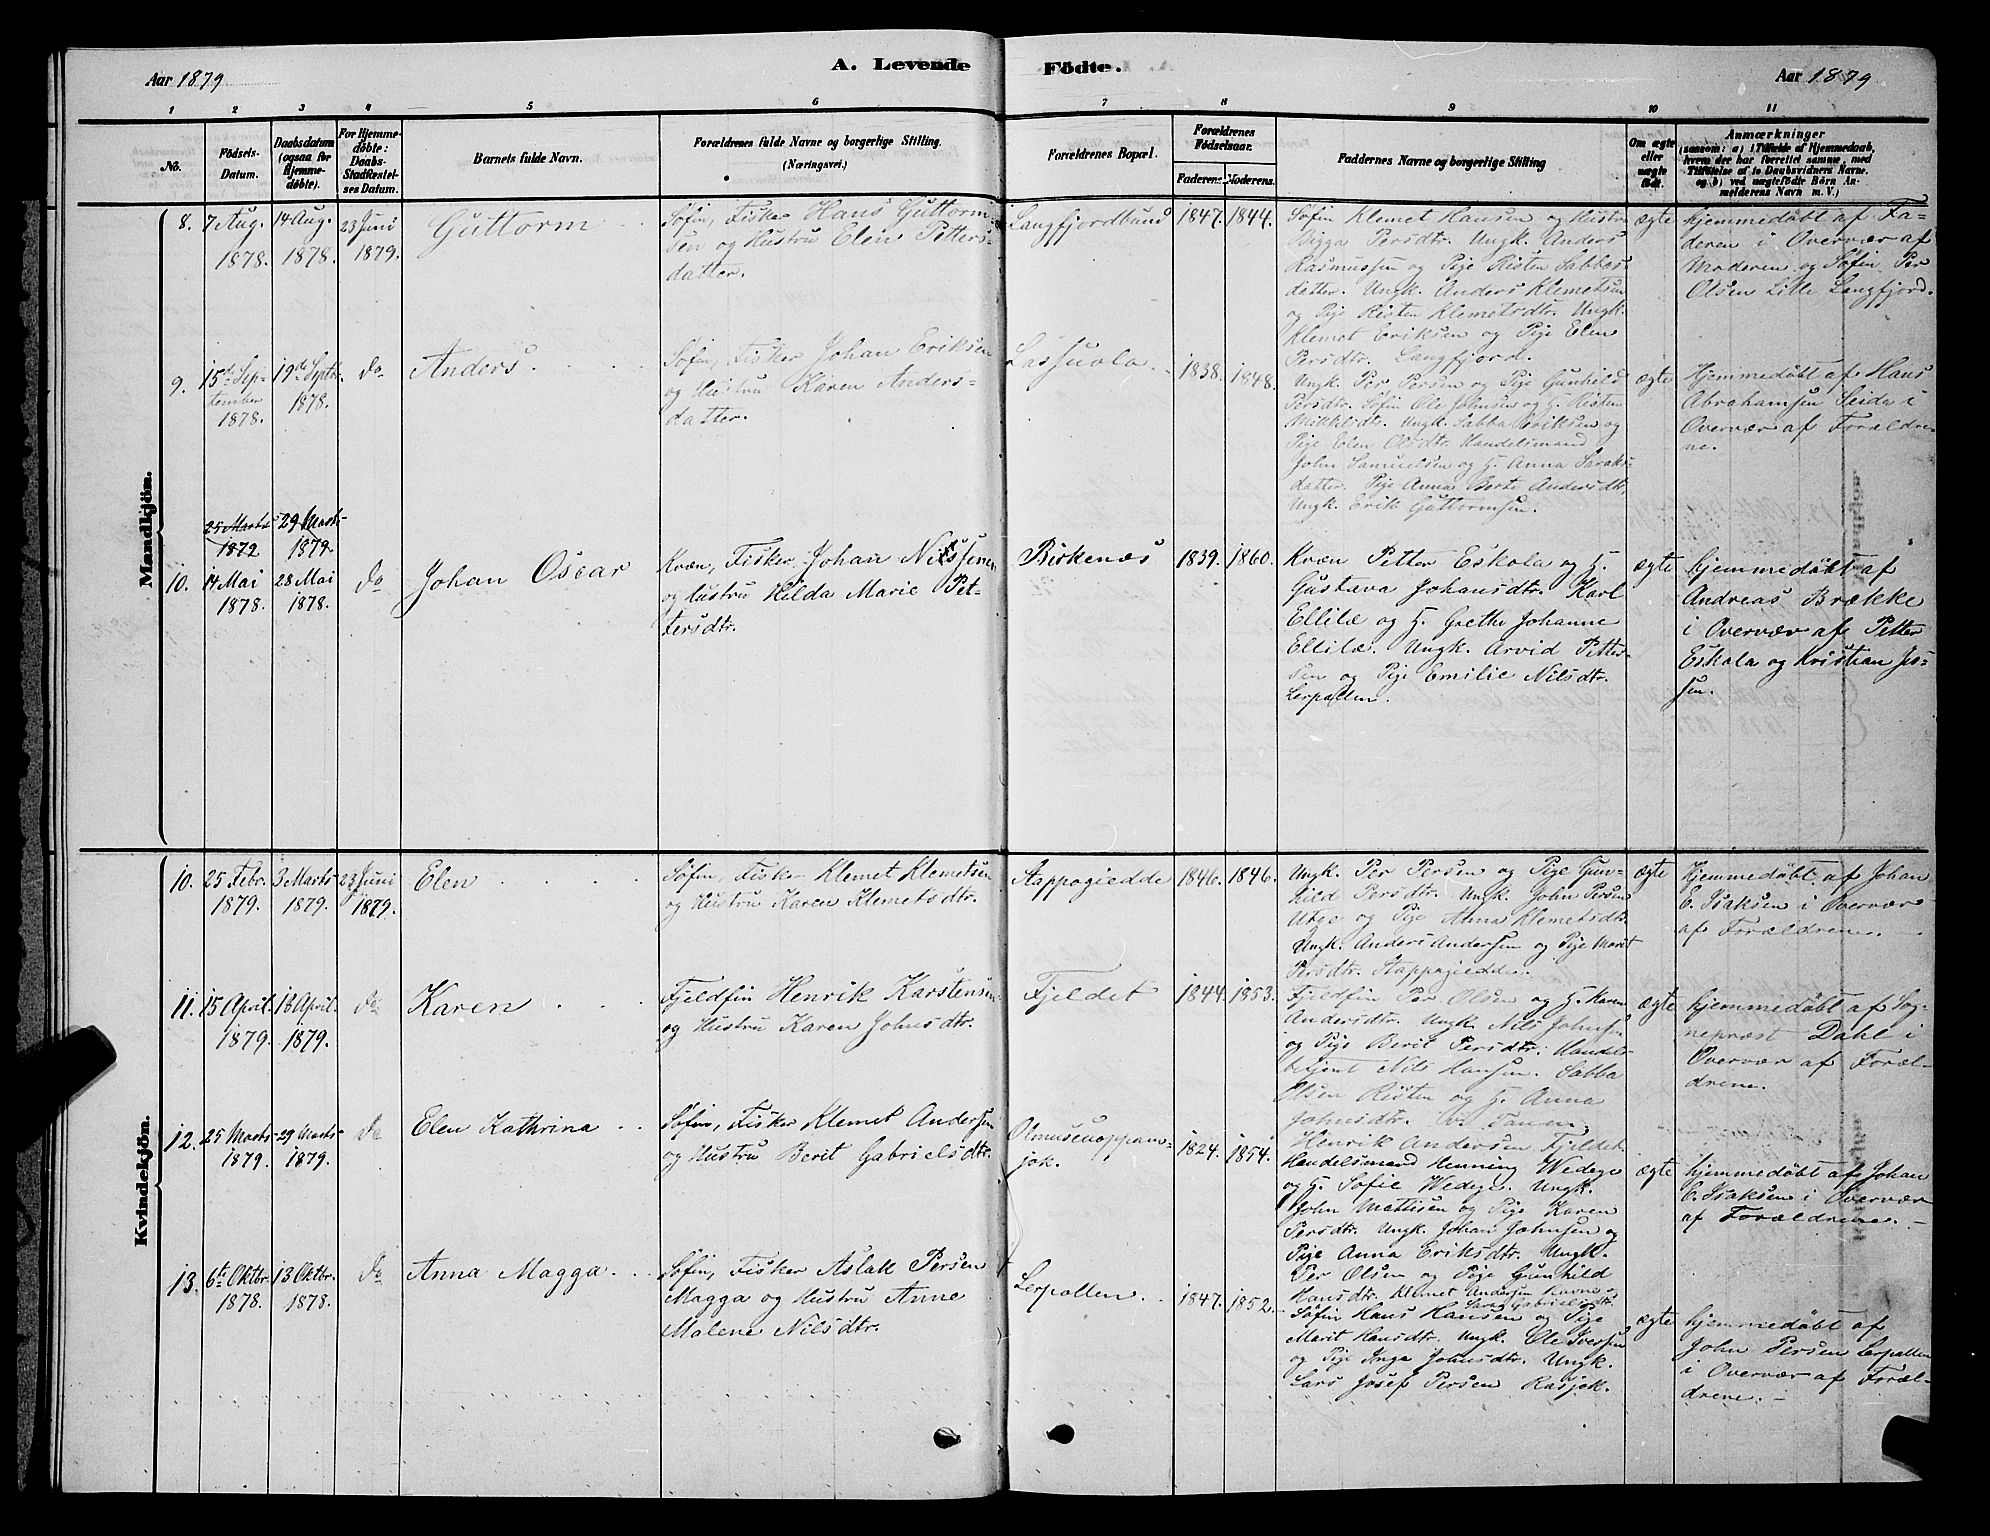 Aar 1879
A. Levende
Födte.
Aar 1879
1 2 3 4 5 6 7 8 9 10 11
No.
Födsels-
Datum.
Daabsdatum
(ogsaa for
Hjemme-
døbte).
For Hjemme-
døbte:
Daabs-
Stadfæstel-
ses Datum.
Barnets fulde Navn.
Forældrenes fulde Navne og borgerlige Stilling.
(Næringsvei.)
Forældrenes Bopæl.
Forældrenes
Födselsaar.
Faderens. Moderens.
Faddernes Navne og borgerlige Stilling
Om ægte
eller
uægte
født.
Anmærkninger
(saasom: a) i Tilfælde af Hjemmedaab,
hvem der har forrettet samme, med
Tilföielse af to Daabsvidners Navne.
og b) ved uægtefödte Börn An-
melderens Navn m. V.)
Mandkjön.
8.
7 Aug.
1878.
14 Aug.
1878.
23 Juni
1879.
Guttorm
Søfin, Fisker Hans Guttorm-
sen og Hustru Elen Petters-
datter.
Langfjordbund
1847. 1844.
Søfin Klemet Hansen og Hustru
Bigga Persdtr. Ungk. Anders
Rasmussen og Pige Risten Sabbas-
datter. Ungk. Anders Klemetsen
og Pige Risten Klemetsdtr. Ungk.
Klemet Eriksen og Pige Elen
Persdtr. Langfjord.
ægte
hjemmedøbt af Fa-
deren i Overvær af
Moderen og Søfin Per
Olsen Lille Langfjord.
9.
15de Sep-
tember
1878.
19de Septr.
1878.
do
Anders
Søfin, Fisker Johan Eriksen
og Hustru Karen Anders-
datter.
Lassuola
1838. 1848.
Ungk. Per Persen og Pige Gunhild
Persdtr. Søfin Ole Johnsen og H. Risten
Mikkelsdtr. Ungk. Sabba Eriksen og
Pige Elen Olsdtr. Handelsmand
John Samuelsen og H. Anna Saraks-
datter. Pige Anna Berte Andersdtr.
Ungk. Erik Guttormsen.
ægte
Hjemmedøbt af Hans
Abrahamsen Seida i
Overvær af Forældre-
ne.
25 Marts
1872
29 Marts
1879.
10.
14 Mai
1878.
28 Mai
1878.
do
Johan Oscar
Kvæn, Fisker Johan Nilssen
og Hustru Hilda Marie Pet-
tersdtr.
Birkenæs
1839. 1860.
Kvæn Petter Eskola og H.
Gustava Johansdtr. Karl
Ellilæ og H. Grethe Johanne
Ellilæ. Ungk. Arvid Petter-
sen og Pige Emilie Nilsdtr.
Lerpollen.
ægte
hjemmedøbt af
Andreas Brække
i Overvær af Petter
Eskola og Kristian Jes-
sen.
Kvindekjön.
10.
25 Febr.
1879.
3 Marts
1879.
23 Juni
1879.
Elen
Søfin, Fisker Klemet Klemetsen
og Hustru Karen Klemetsdtr.
Stappogiedde
1846. 1846.
Ungk. Per Persen og Pige Gun-
hild Persdtr. Ungk. John Persen
Utge og Pige Anna Klemetsdtr.
Ungk. Anders Andersen og Pige Marit
Persdtr. Stappogiedde.
ægte
hjemmedøbt af Johan
E. Isaksen i Overvær
af Forældrene.
11.
15 April.
1879.
16 April.
1879.
do
Karen
Fjeldfin Henrik Karstensen
og Hustru Karen Johnsdtr.
Fjeldet
1844. 1853.
Fjeldfin Per Olsen og H. Karen
Andersdtr. Ungk. Nils Johns.
og Pige Berit Persdtr. Handels-
betjent Nils Hansen. Sabba
Olsen Risten og H. Anna
Johnsdtr. Tanen.
Henrik Andersen Fjeldet.
ægte
hjemmedøbt af Sog-
nepræst Dahl i
Overvær af Foræl-
drene.
12.
25 Marts
1879.
29 Marts
1879.
do
Elen Kathrina
Søfin, Fisker Klemet Andersen
og Hustru Berit Gabrielsdtr.
Olmusevoppam-
jok.
1824. 1854.
Handelsmand Henning Wedege
og H. Sofie Wedege. Ungk.
John Mattisen og Pige Karen
Persdtr. Ungk. Johan Johnsen og
Pige Anna Eriksdtr. Ungk.
Per Olsen og Pige Gunhild
Hansdtr. Klemet Andersen Ravna og
Sara Gabrielsdtr.
ægte
hjemmedøbt af Johan
E. Isaksen i Overvær
af Forældrene.
13.
6te Oktbr.
1878.
13 Oktbr.
1878.
do
Anna Magga
Søfin, Fisker Aslak Persen
Magga og Hustru Anne
Malene Nilsdtr.
Lerpollen.
1847. 1852.
Søfin Hans Hansen og Pige
Merit Hansdtr. Ungk. Ole Iversen
og Pige Inga Johnsdtr. Ungk.
Lars Josef Persen Rasjok.
ægte
hjemmedøbt af
John Persen Lerpollen
i Overvær af Foræl-
drene.